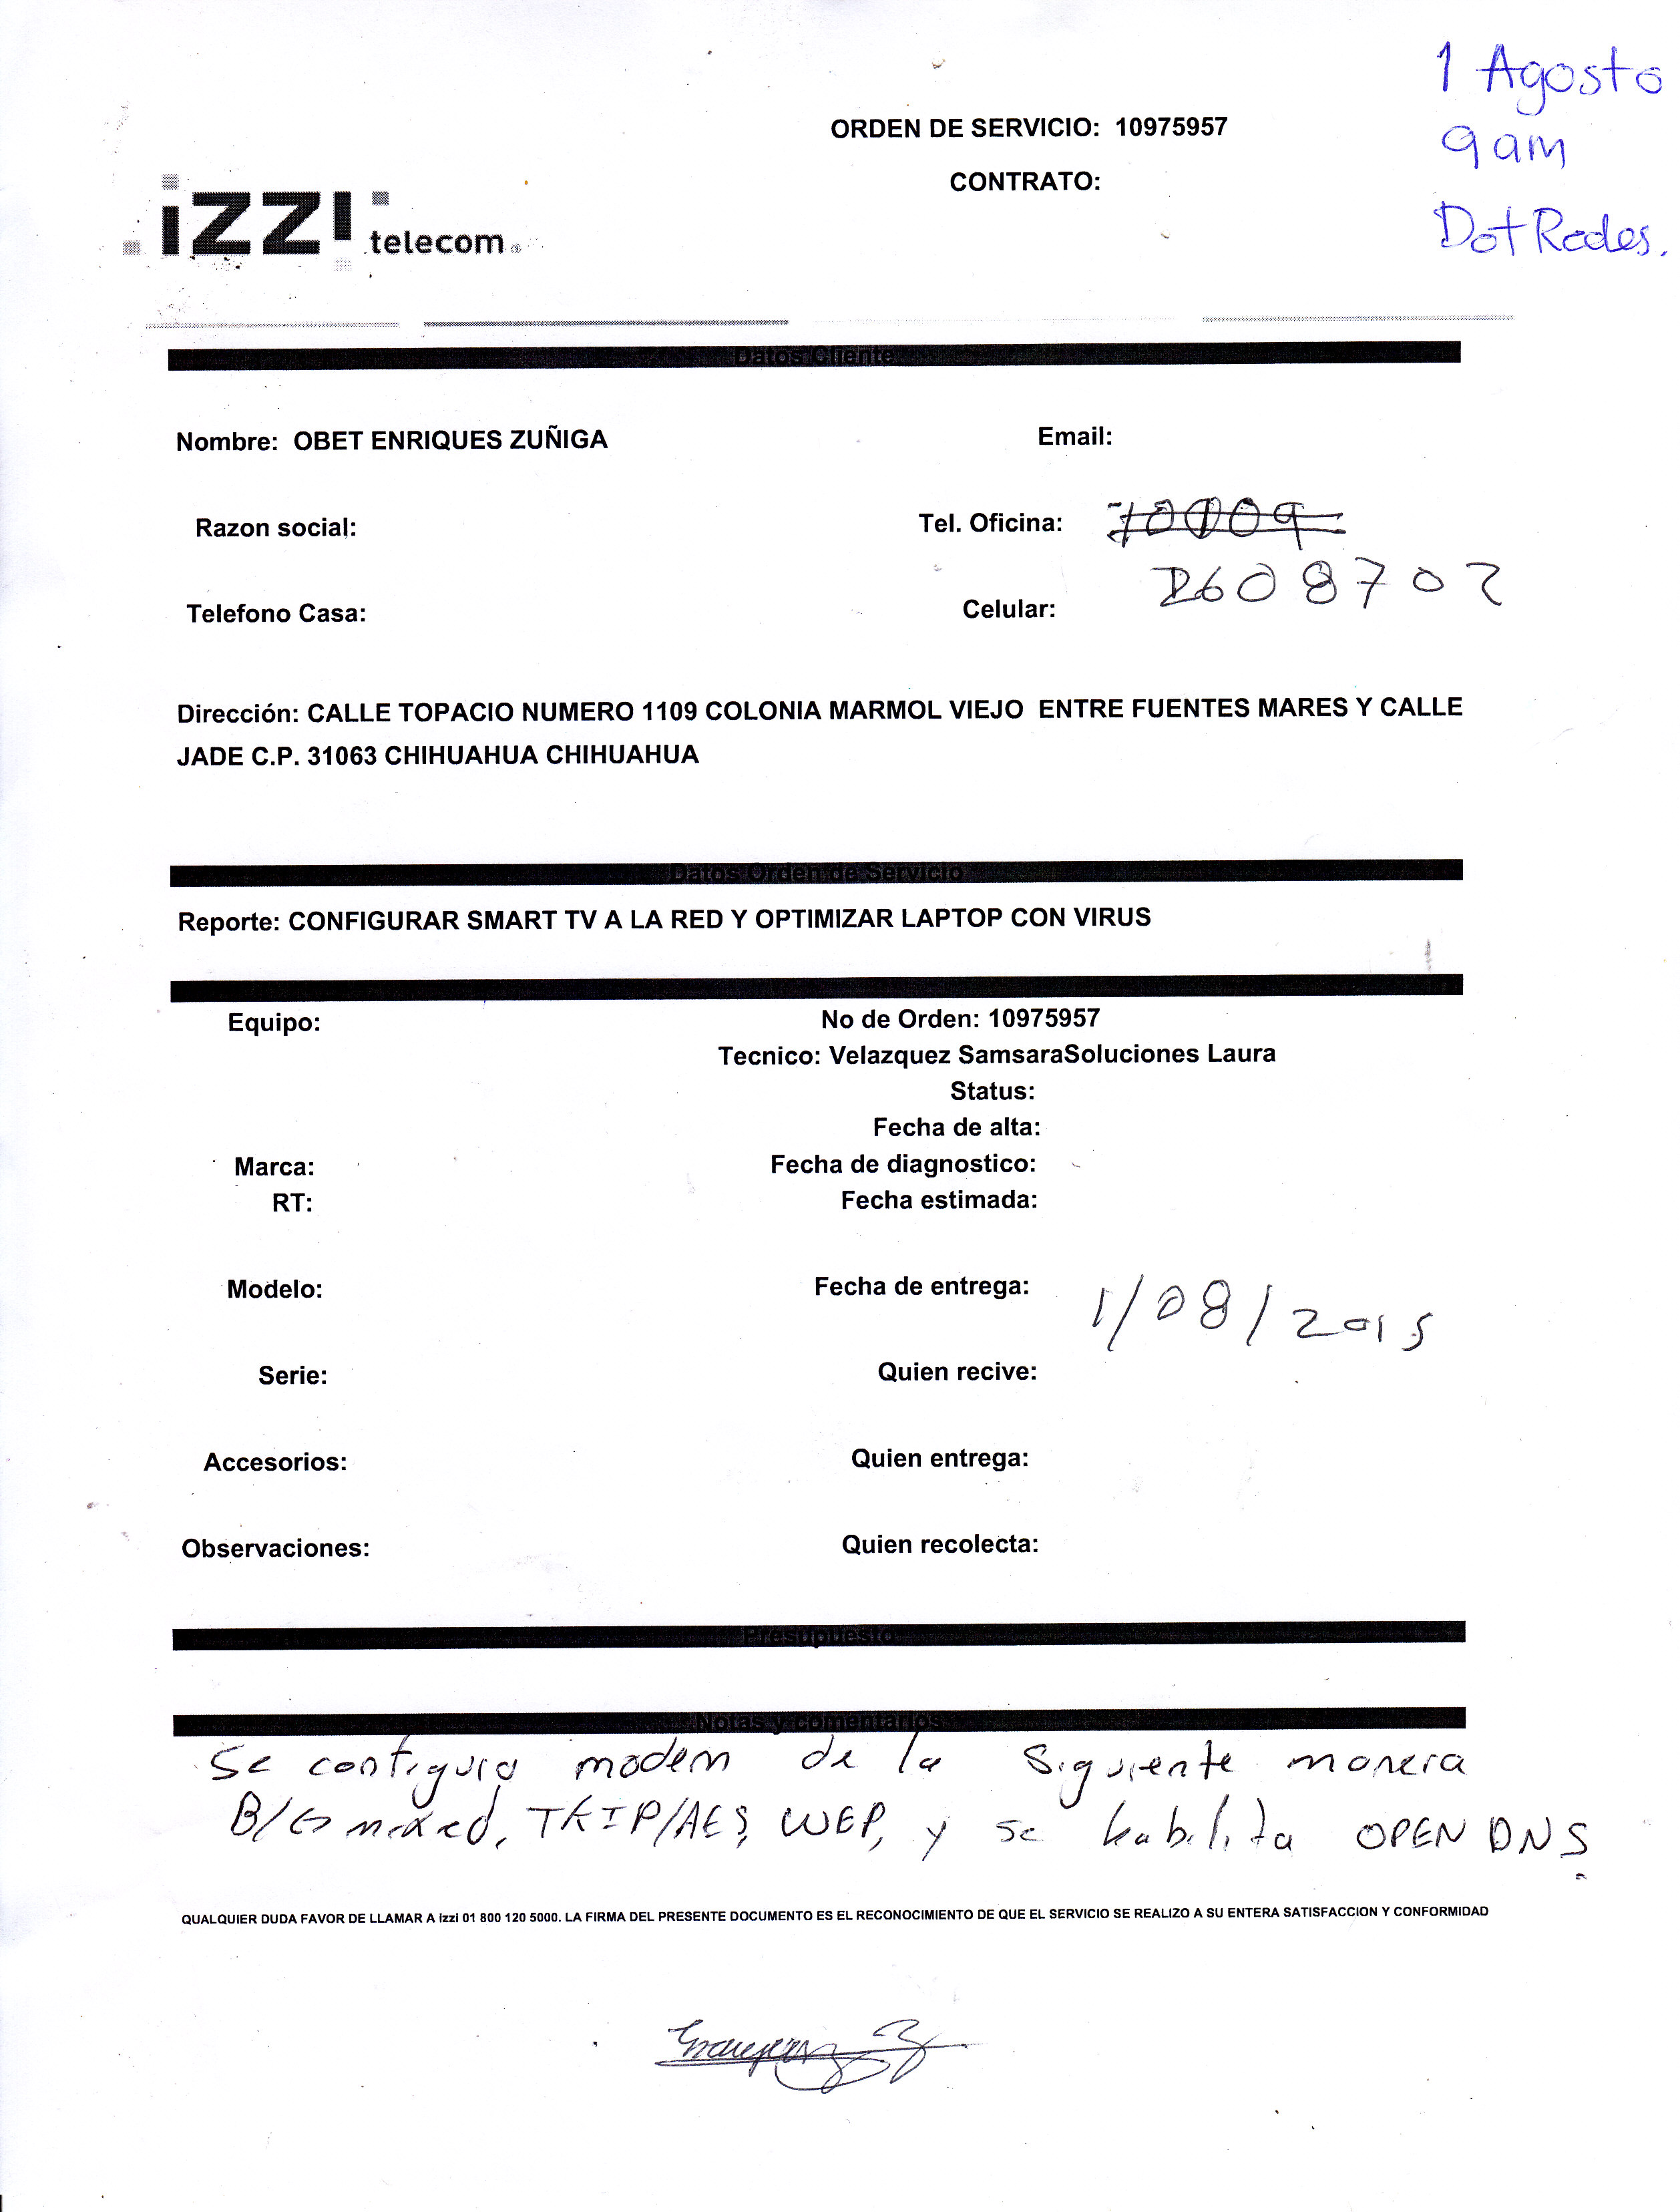 1 Agosto
9 am
Dot Redes.
ORDEN DE SERVICIO: 10975957
CONTRATO:
izzi telecom
Datos Cliente
Nombre: OBET ENRIQUES ZUÑIGA
Email:
Razon social:
Tel. Oficina:
2608702
Telefono Casa:
Celular:
Dirección: CALLE TOPACIO NUMERO 1109 COLONIA MARMOL VIEJO ENTRE FUENTES MARES Y CALLE
JADE C.P. 31063 CHIHUAHUA CHIHUAHUA
Datos Orden de Servicio
Reporte: CONFIGURAR SMART TV A LA RED Y OPTIMIZAR LAPTOP CON VIRUS
Equipo:
No de Orden: 10975957
Tecnico: Velazquez SamsaraSoluciones Laura
Status:
Fecha de alta:
Marca:
Fecha de diagnostico:
RT:
Fecha estimada:
Modelo:
Fecha de entrega: 1/08/2015
Serie:
Quien recive:
Accesorios:
Quien entrega:
Observaciones:
Quien recolecta:
Presupuesto
Notas y comentarios
Se configura modem de la siguiente manera
B/G mixed, TKIP/AES, WEP, y se habilita OPEN DNS
QUALQUIER DUDA FAVOR DE LLAMAR A izzi 01 800 120 5000. LA FIRMA DEL PRESENTE DOCUMENTO ES EL RECONOCIMIENTO DE QUE EL SERVICIO SE REALIZO A SU ENTERA SATISFACCION Y CONFORMIDAD